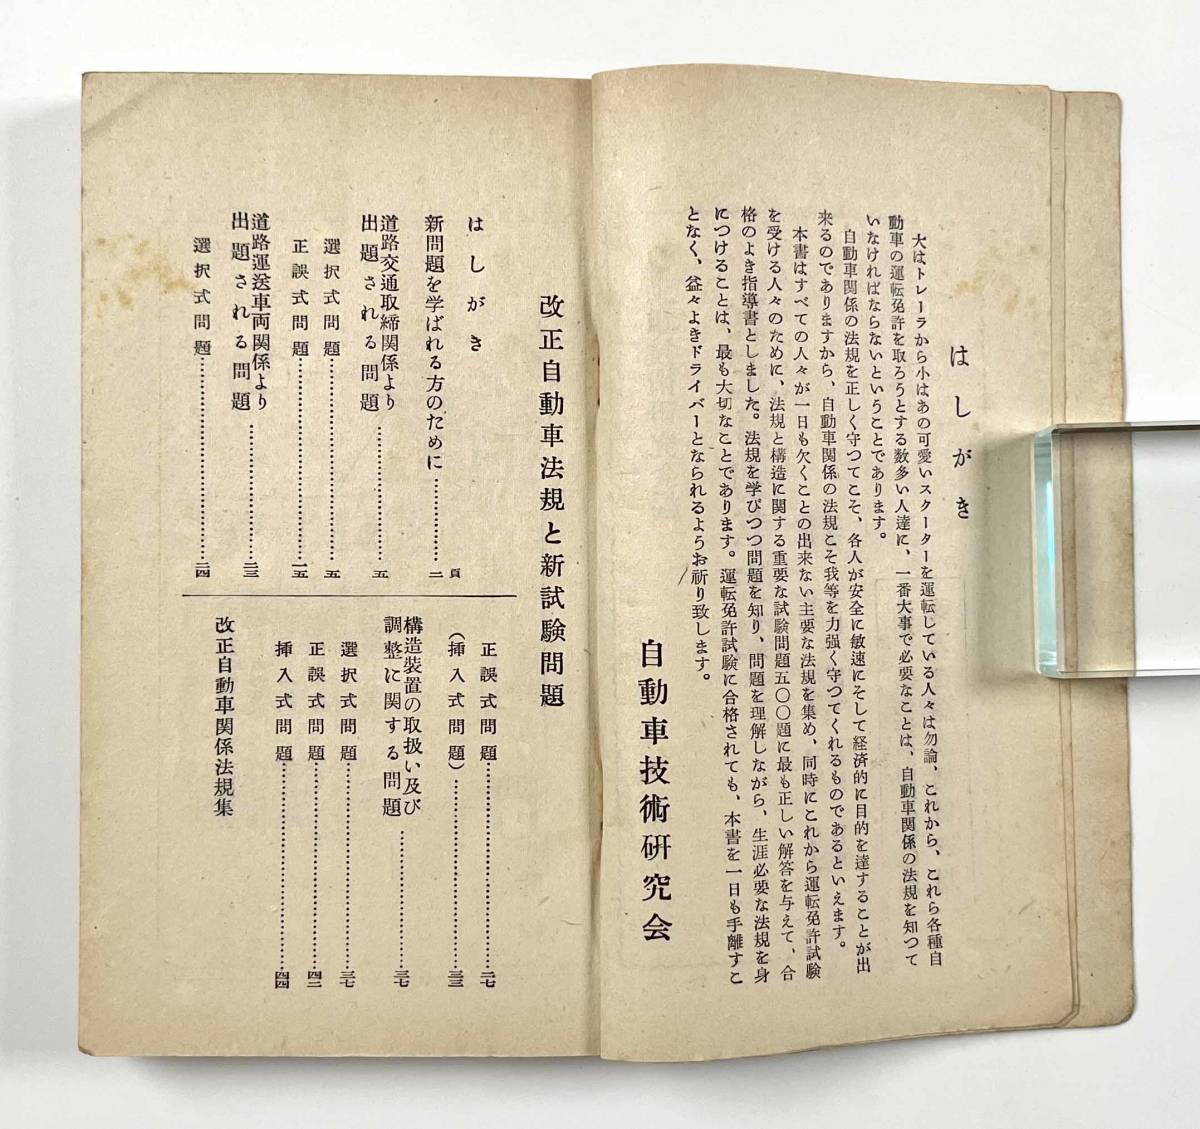 はしがき
大はトレーラから小はあの可愛いスクーターを運転している人々は勿論、これから、これら各種自
動車の運転免許を取ろうとする数多い人達に、一番大事で必要なことは、自動車関係の法規を知つて
いなければならないということであります。
自動車関係の法規を正しく守つてこそ、各人が安全に敏速にそして経済的に目的を達することが出
来るのでありますから、自動車関係の法規こそ我等を力強く守つてくれるものであるといえます。
本書はすべての人々が一日も欠くことの出来ない主要な法規を集め、同時にこれから運転免許試験
を受ける人々のために、法規と構造に関する重要な試験問題五〇〇題に最も正しい解答を与えて、合
格のよき指導書としました。法規を学びつつ問題を知り、問題を理解しながら、生涯必要な法規を身
につけることは、最も大切なことであります。運転免許試験に合格されても、本書を一日も手離すこ
となく、益々よきドライバーとなられるようお祈り致します。
自動車技術研究会
改正自動車法規と新試験問題
はしがき
新問題を学ばれる方のために…………二頁
道路交通取締関係より
出題される問題…………五
選択式問題…………五
正誤式問題…………一五
道路運送車両関係より
出題される問題…………二三
選択式問題…………二四
正誤式問題…………二七
(挿入式問題)…………三三
構造装置の取扱い及び
調整に関する問題…………三七
選択式問題…………三七
正誤式問題…………四二
挿入式問題…………四四
改正自動車関係法規集